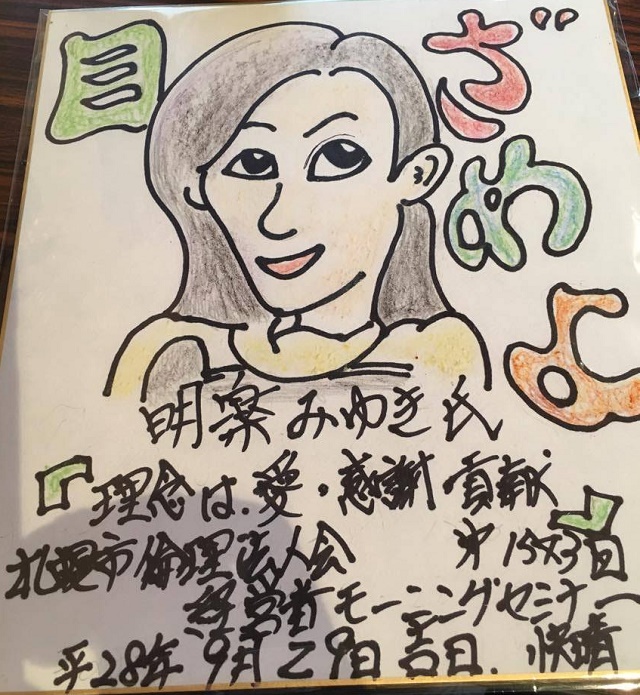 目ざめよ
明楽みゆき氏
『理念は、愛・感謝・貢献』
札幌市倫理法人会 第1573回
経営者モーニングセミナー
平28年9月29日 吉日、快晴